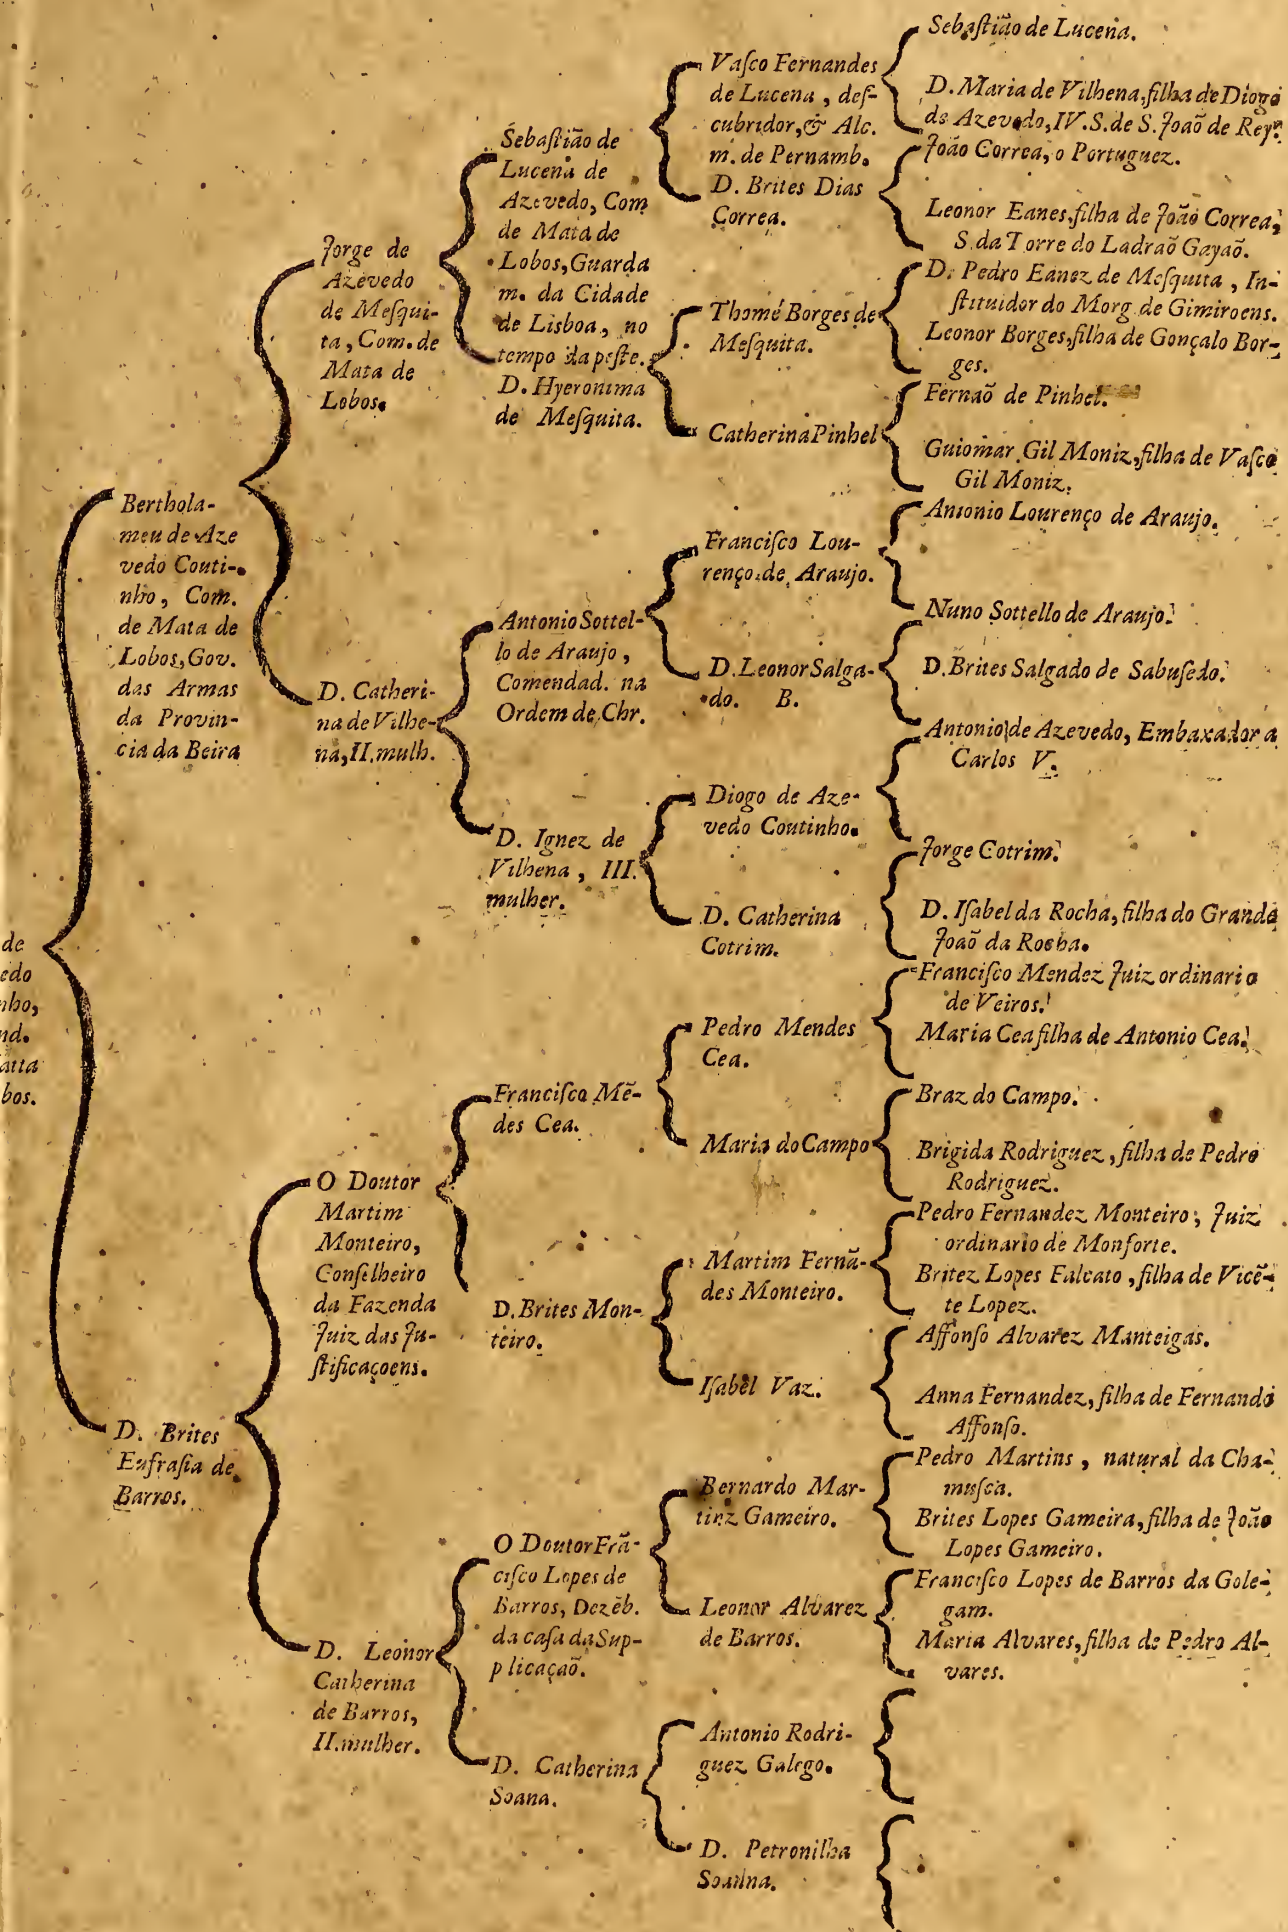 de
edo
nho,
nd.
atta
bos.
Berthola-
meu de Aze
vedo Couti-
nho, Com.
de Mata de
Lobos, Gov.
das Armas
da Provin-
cia da Beira
D. Brites
Eufraſia de
Barros.
Jorge de
Azevedo
de Meſqui-
ta, Com. de
Mata de
Lobos.
D. Catheri-
na de Vilhe-
na, II. mulh.
O Doutor
Martim
Monteiro,
Conſelheiro
da Fazenda
Juiz das Ju-
ſtificaçoens.
D. Leonor
Catherina
de Barros,
II. mulher.
Sebaſtião de
Lucena de
Azevedo, Com
de Mata de
Lobos, Guarda
m. da Cidade
de Lisboa, no
tempo da peſte.
D. Hyeronima
de Meſquita.
Antonio Sottel-
lo de Araujo,
Comendad. na
Ordem de Chr.
D. Ignez de
Vilhena, III.
mulher.
Franciſco Mẽ-
des Cea.
D. Brites Mon-
teiro.
O Doutor Frã-
ciſco Lopes de
Barros, Dezẽb.
da caſa da Sup-
plicaçaõ.
D. Catherina
Soana.
Vaſco Fernandes
de Lucena, deſ-
cubridor, & Alc.
m. de Pernamb.
D. Brites Dias
Correa.
Thomé Borges de
Meſquita.
Catherina Pinhel
Franciſco Lou-
renço de Araujo.
D. Leonor Salga-
do. B.
Diogo de Aze-
vedo Coutinho.
D. Catherina
Cotrim.
Pedro Mendes
Cea.
Maria do Campo
Martim Fernã-
des Monteiro.
Iſabel Vaz.
Bernardo Mar-
tinz Gameiro.
Leonor Alvarez
de Barros.
Antonio Rodri-
guez Galego.
D. Petronilha
Sebaſtião de Lucena.
D. Maria de Vilhena, filha de Diogo
de Azevedo, IV. S. de S. Joaõ de Rey.
João Correa, o Portuguez.
Leonor Eanes, filha de João Correa,
S. da Torre do Ladraõ Gayaõ.
D. Pedro Eanez de Meſquita, In-
ſtituidor do Morg. de Gimiroens.
Leonor Borges, filha de Gonçalo Bor-
ges.
Fernaõ de Pinhel.
Guiomar Gil Moniz, filha de Vaſco
Gil Moniz.
Antonio Lourenço de Araujo.
Nuno Sottello de Araujo.
D. Brites Salgado de Sabuſedo.
Antonio de Azevedo, Embaxador a
Carlos V.
Jorge Cotrim.
D. Iſabel da Rocha, filha do Grande
Joaõ da Rocha.
Franciſco Mendez Juiz ordinario
de Veiros.
Maria Cea filha de Antonio Cea.
Braz do Campo.
Brigida Rodriguez, filha de Pedro
Rodriguez.
Pedro Fernandez Monteiro, Juiz
ordinario de Monforte.
Britez Lopes Falcato, filha de Vicẽ-
te Lopez.
Affonſo Alvarez Manteigas.
Anna Fernandez, filha de Fernando
Affonſo.
Pedro Martins, natural da Cha-
muſca.
Brites Lopes Gameira, filha de João
Lopes Gameiro.
Franciſco Lopes de Barros da Gole-
gam.
Maria Alvares, filha de Pedro Al-
vares.